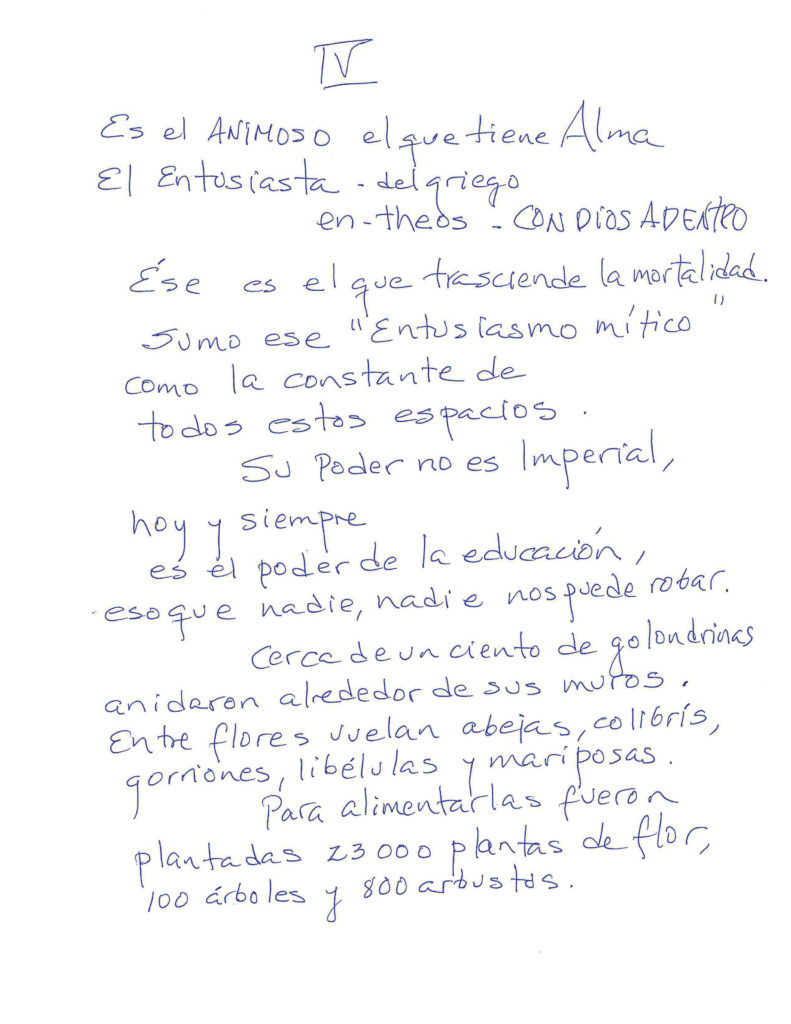 IV
Es el ANIMOSO el que tiene Alma
El Entusiasta - del griego
en-theos - CON DIOS ADENTRO
Ése es el que trasciende la mortalidad.
Sumo ese "Entusiasmo mítico"
como la constante de
todos estos espacios.
Su Poder no es Imperial,
hoy y siempre
es el poder de la educación,
eso que nadie, nadie nos puede robar.
Cerca de un ciento de golondrinas
anidaron alrededor de sus muros.
Entre flores vuelan abejas, colibrís,
gorriones, libélulas y mariposas.
Para alimentarlas fueron
plantadas 23000 plantas de flor,
100 árboles y 800 arbustos.